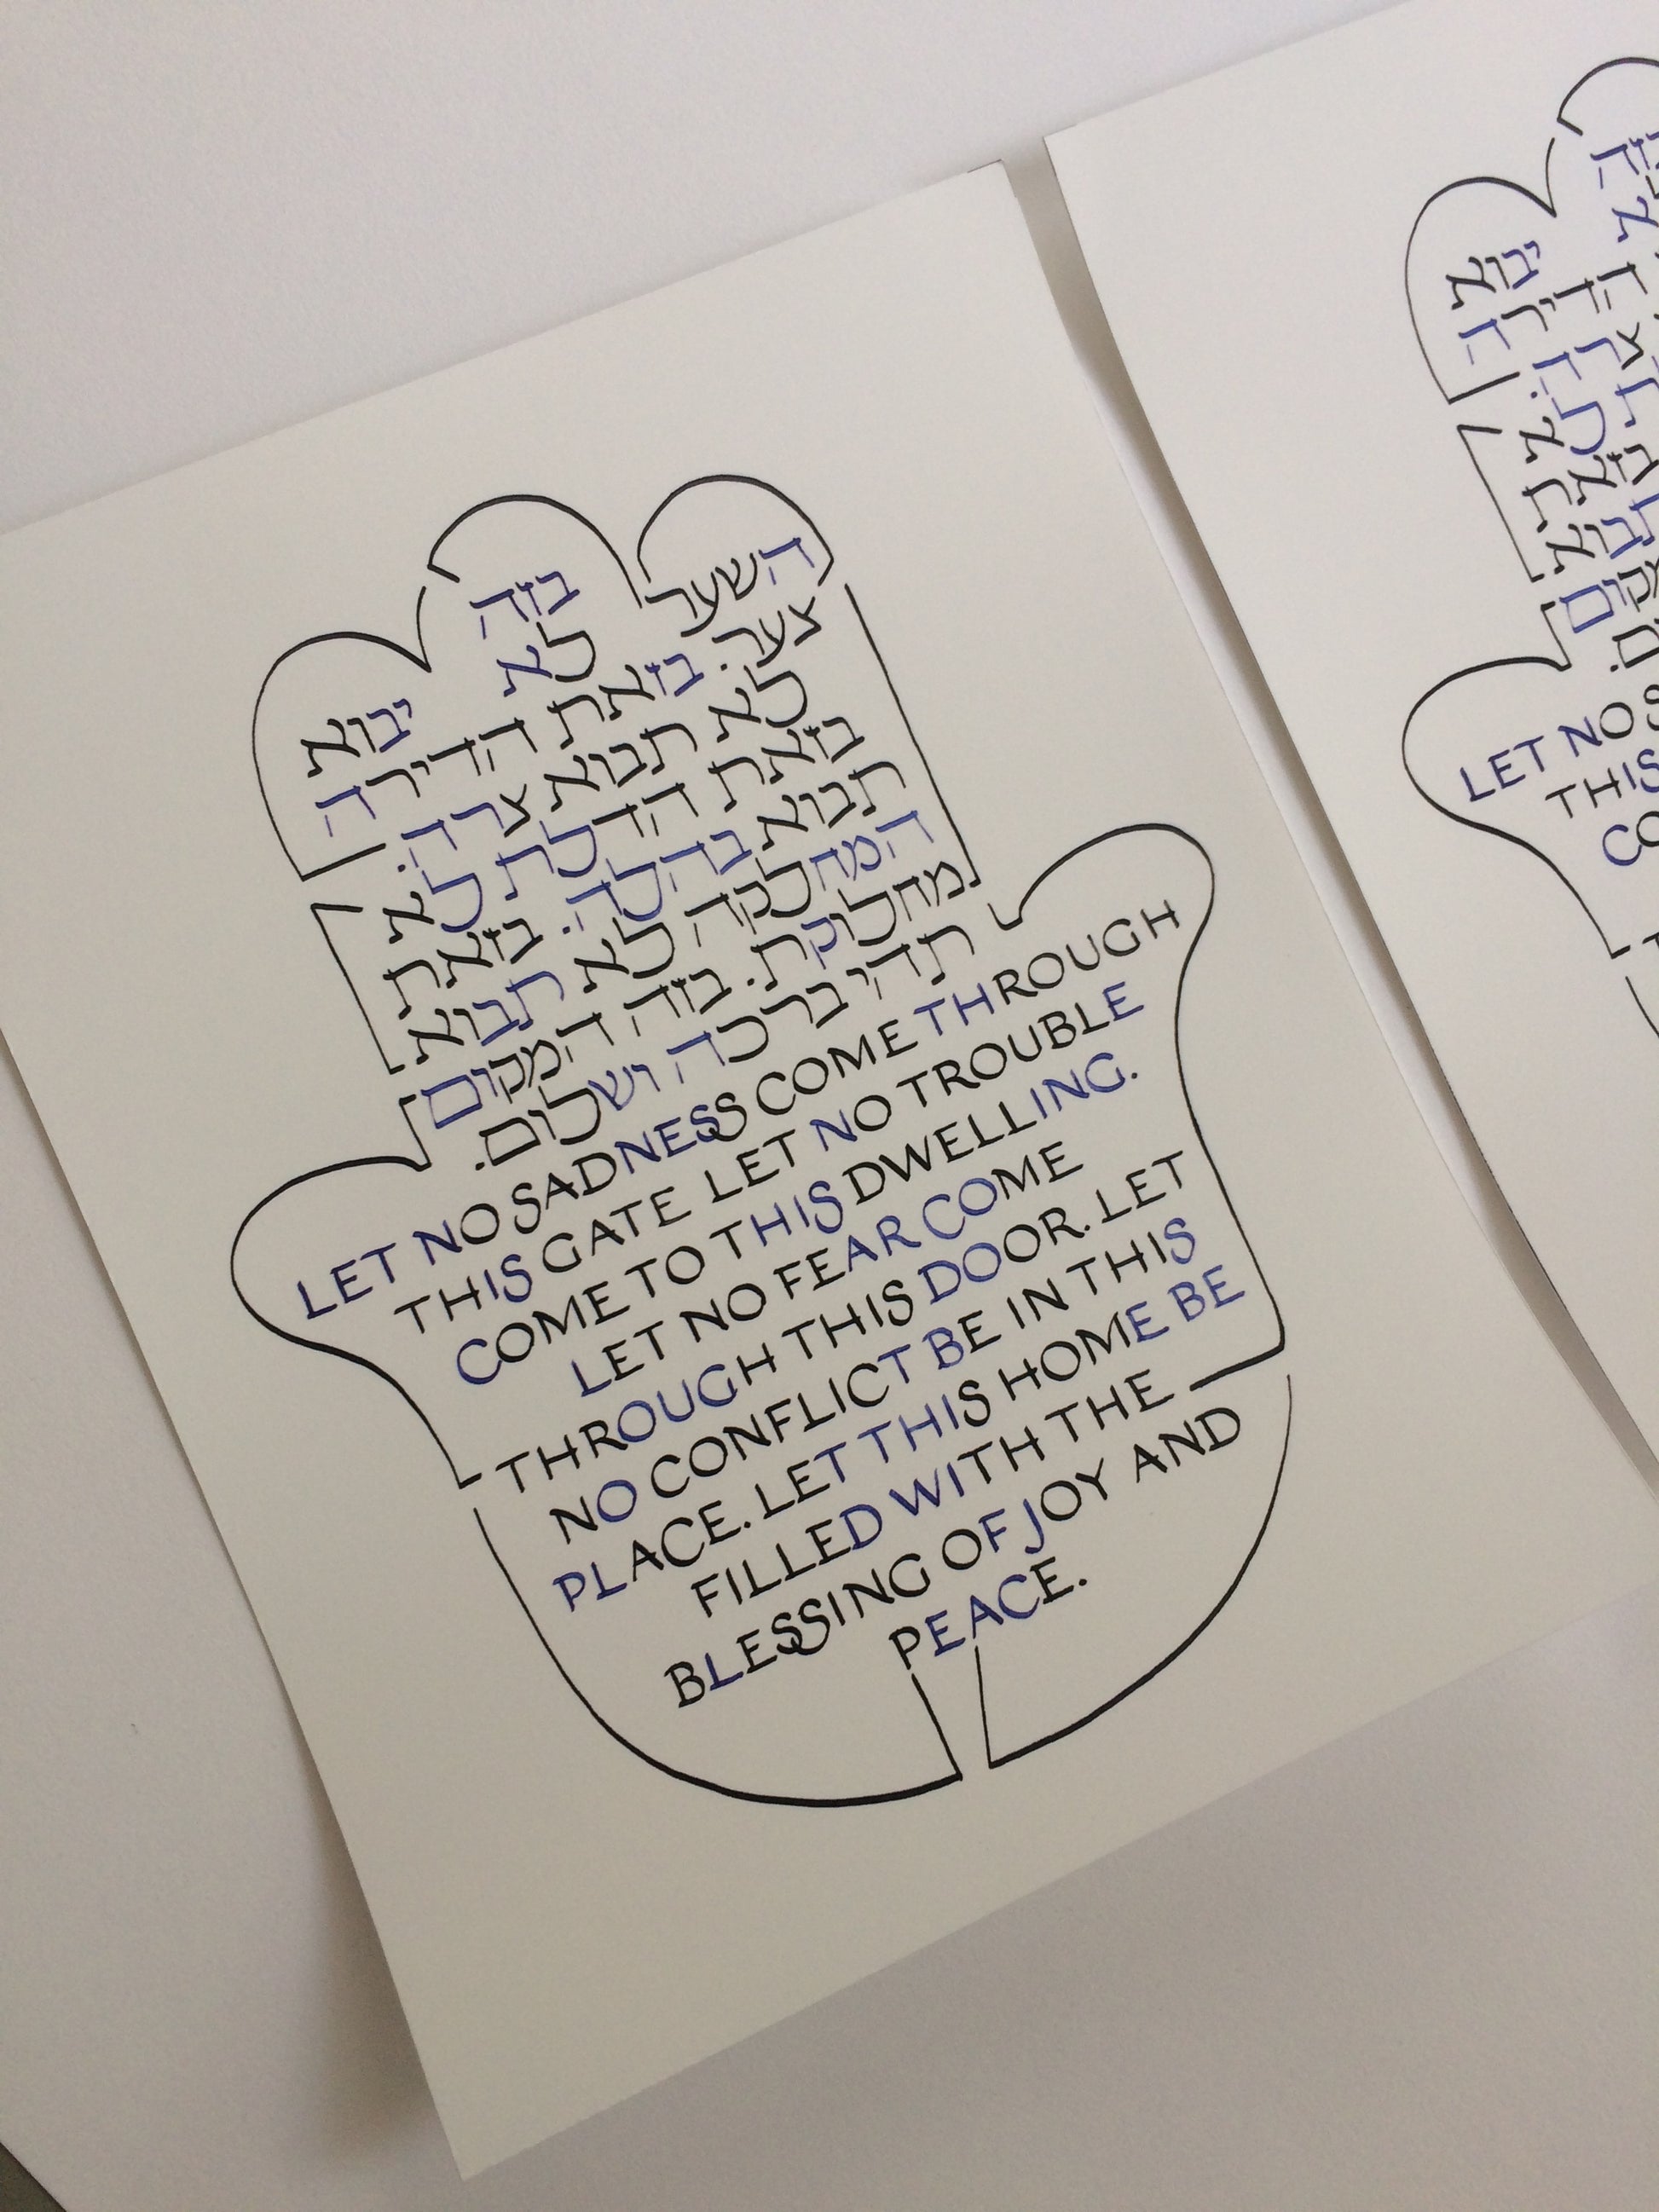 בזה
השער לא יבוא
צער. בזאת הדירה
לא תבוא צרה.
בזאת הדלת לא
תבוא בהלה. בזאת
המחלקה לא תבוא
מחלוקת. בזה המקום
תהי ברכה ושלום.
LET NO SADNESS COME THROUGH
THIS GATE LET NO TROUBLE
COME TO THIS DWELLING.
LET NO FEAR COME
THROUGH THIS DOOR. LET
NO CONFLICT BE IN THIS
PLACE. LET THIS HOME BE
FILLED WITH THE
BLESSING OF JOY AND
PEACE.
יבוא
הדירה
LET NO
THIS
CO